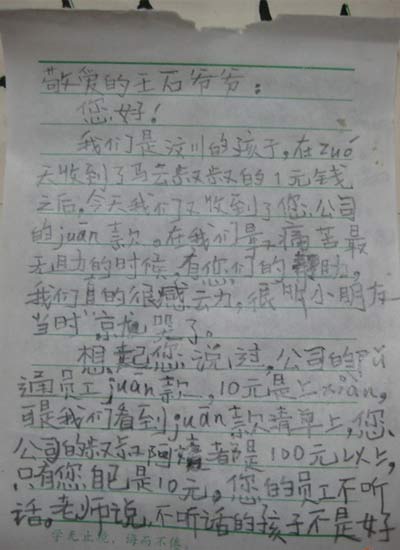 敬爱的王石爷爷：
您好！
我们是汶川的孩子，在zuó
天收到了马云叔叔的1元钱
之后，今天我们又收到了您公司
的juān款。在我们最痛苦最
无助的时候，有您们的帮助，
我们真的很感动，很多小朋友
当时就哭了。
想起您说过，公司的pǔ
通员工juān款，10元是上xiàn，
可是我们看到juān款清单上，您、
公司的叔叔阿姨都是100元以上，
只有您自己是10元。您的员工不听
话。老师说，不听话的孩子不是好
学无止境，海而不倦。